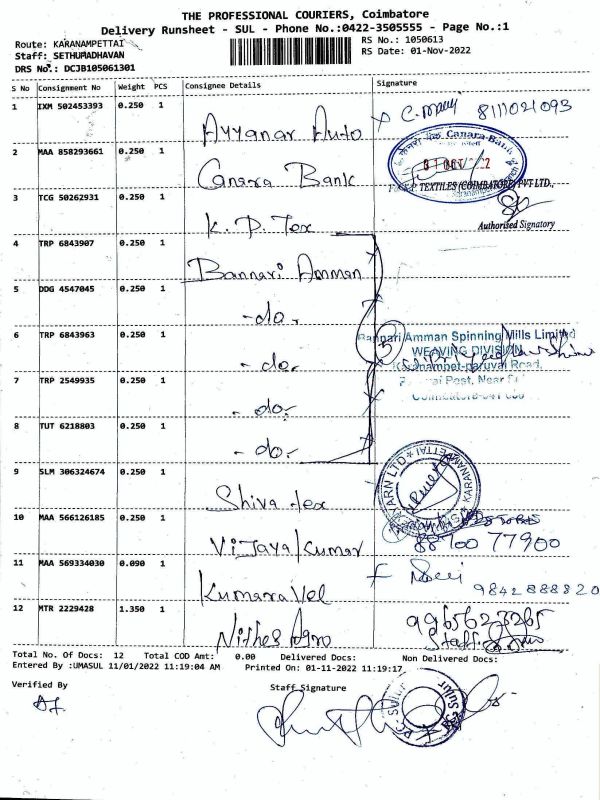 THE PROFESSIONAL COURIERS, Coimbatore
Delivery Runsheet - SUL - Phone No.:0422-3505555 - Page No.:1
Route: KARANAMPETTAI
RS No.: 1050613
Staff: SETHUMADHAVAN
RS Date: 01-Nov-2022
DRS No.: DCJB105061301
S No Consignment No Weight PCS Consignee Details Signature
1 IXM 502453393 0.250 1 Ayyanar Auto 8111021093
2 MAA 858293661 0.250 1 Canara Bank
Canara Bank
3 TCG 50262931 0.250 1 K. P. Tex
TEXTILES (COIMBATORE) PVT LTD.,
Authorised Signatory
4 TRP 6843907 0.250 1 Bannari Amman
5 DDG 4547045 0.250 1 -do-
6 TRP 6843963 0.250 1 -do-
5
Bannari Amman Spinning Mills Limited
WEAVING DIVISION
Karanampet-paruvai Road,
Post, Near
7 TRP 2549935 0.250 1 -do-
8 TUT 6218803 0.250 1 -do-
9 SLM 306324674 0.250 1 Shiva tex
YARN LTD
KARANAMPETTAI
10 MAA 566126185 0.250 1 Vijaya Kumar
88700 77900
11 MAA 569334030 0.090 1 Kumaravel
9842888820
12 MTR 2229428 1.350 1 Nithes Agro
9965623265
Staff.
Total No. Of Docs: 12 Total COD Amt: 0.00 Delivered Docs: Non Delivered Docs:
Entered By :UMASUL 11/01/2022 11:19:04 AM Printed On: 01-11-2022 11:19:17
Verified By
Staff Signature
PC-Sulur
PC-Sulur